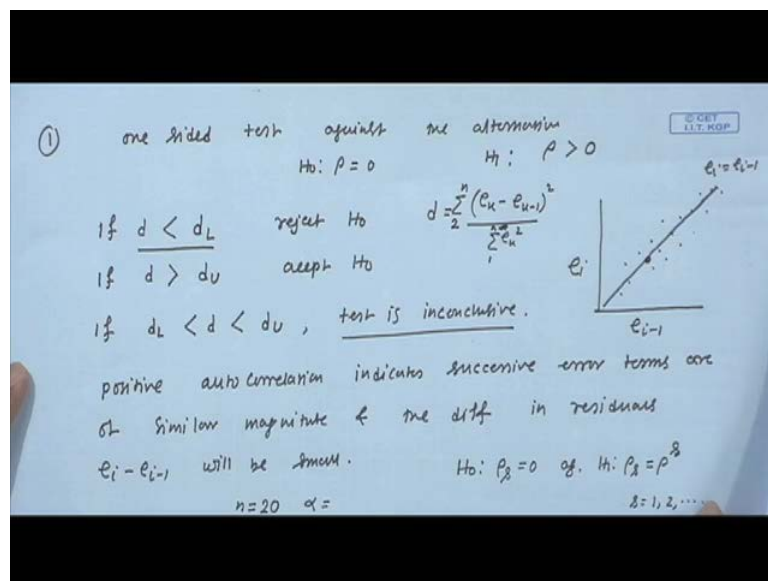 ① one sided test against the alternative
© CET
I.I.T. KGP
H₀: ρ = 0 H₁: ρ > 0
eᵢ = eᵢ₋₁
If d < d_L reject H₀
d = Σ₂ⁿ (e_u − e_{u-1})² / Σ₁ⁿ e_u²
If d > d_U accept H₀
eᵢ
If d_L < d < d_U , test is inconclusive.
eᵢ₋₁
positive auto correlation indicates successive error terms are
of similar magnitute & the diff in residuals
eᵢ − eᵢ₋₁ will be small. H₀: ρ_s = 0 ag. H₁: ρ_s = ρ^s
n=20 α = s = 1, 2, ....